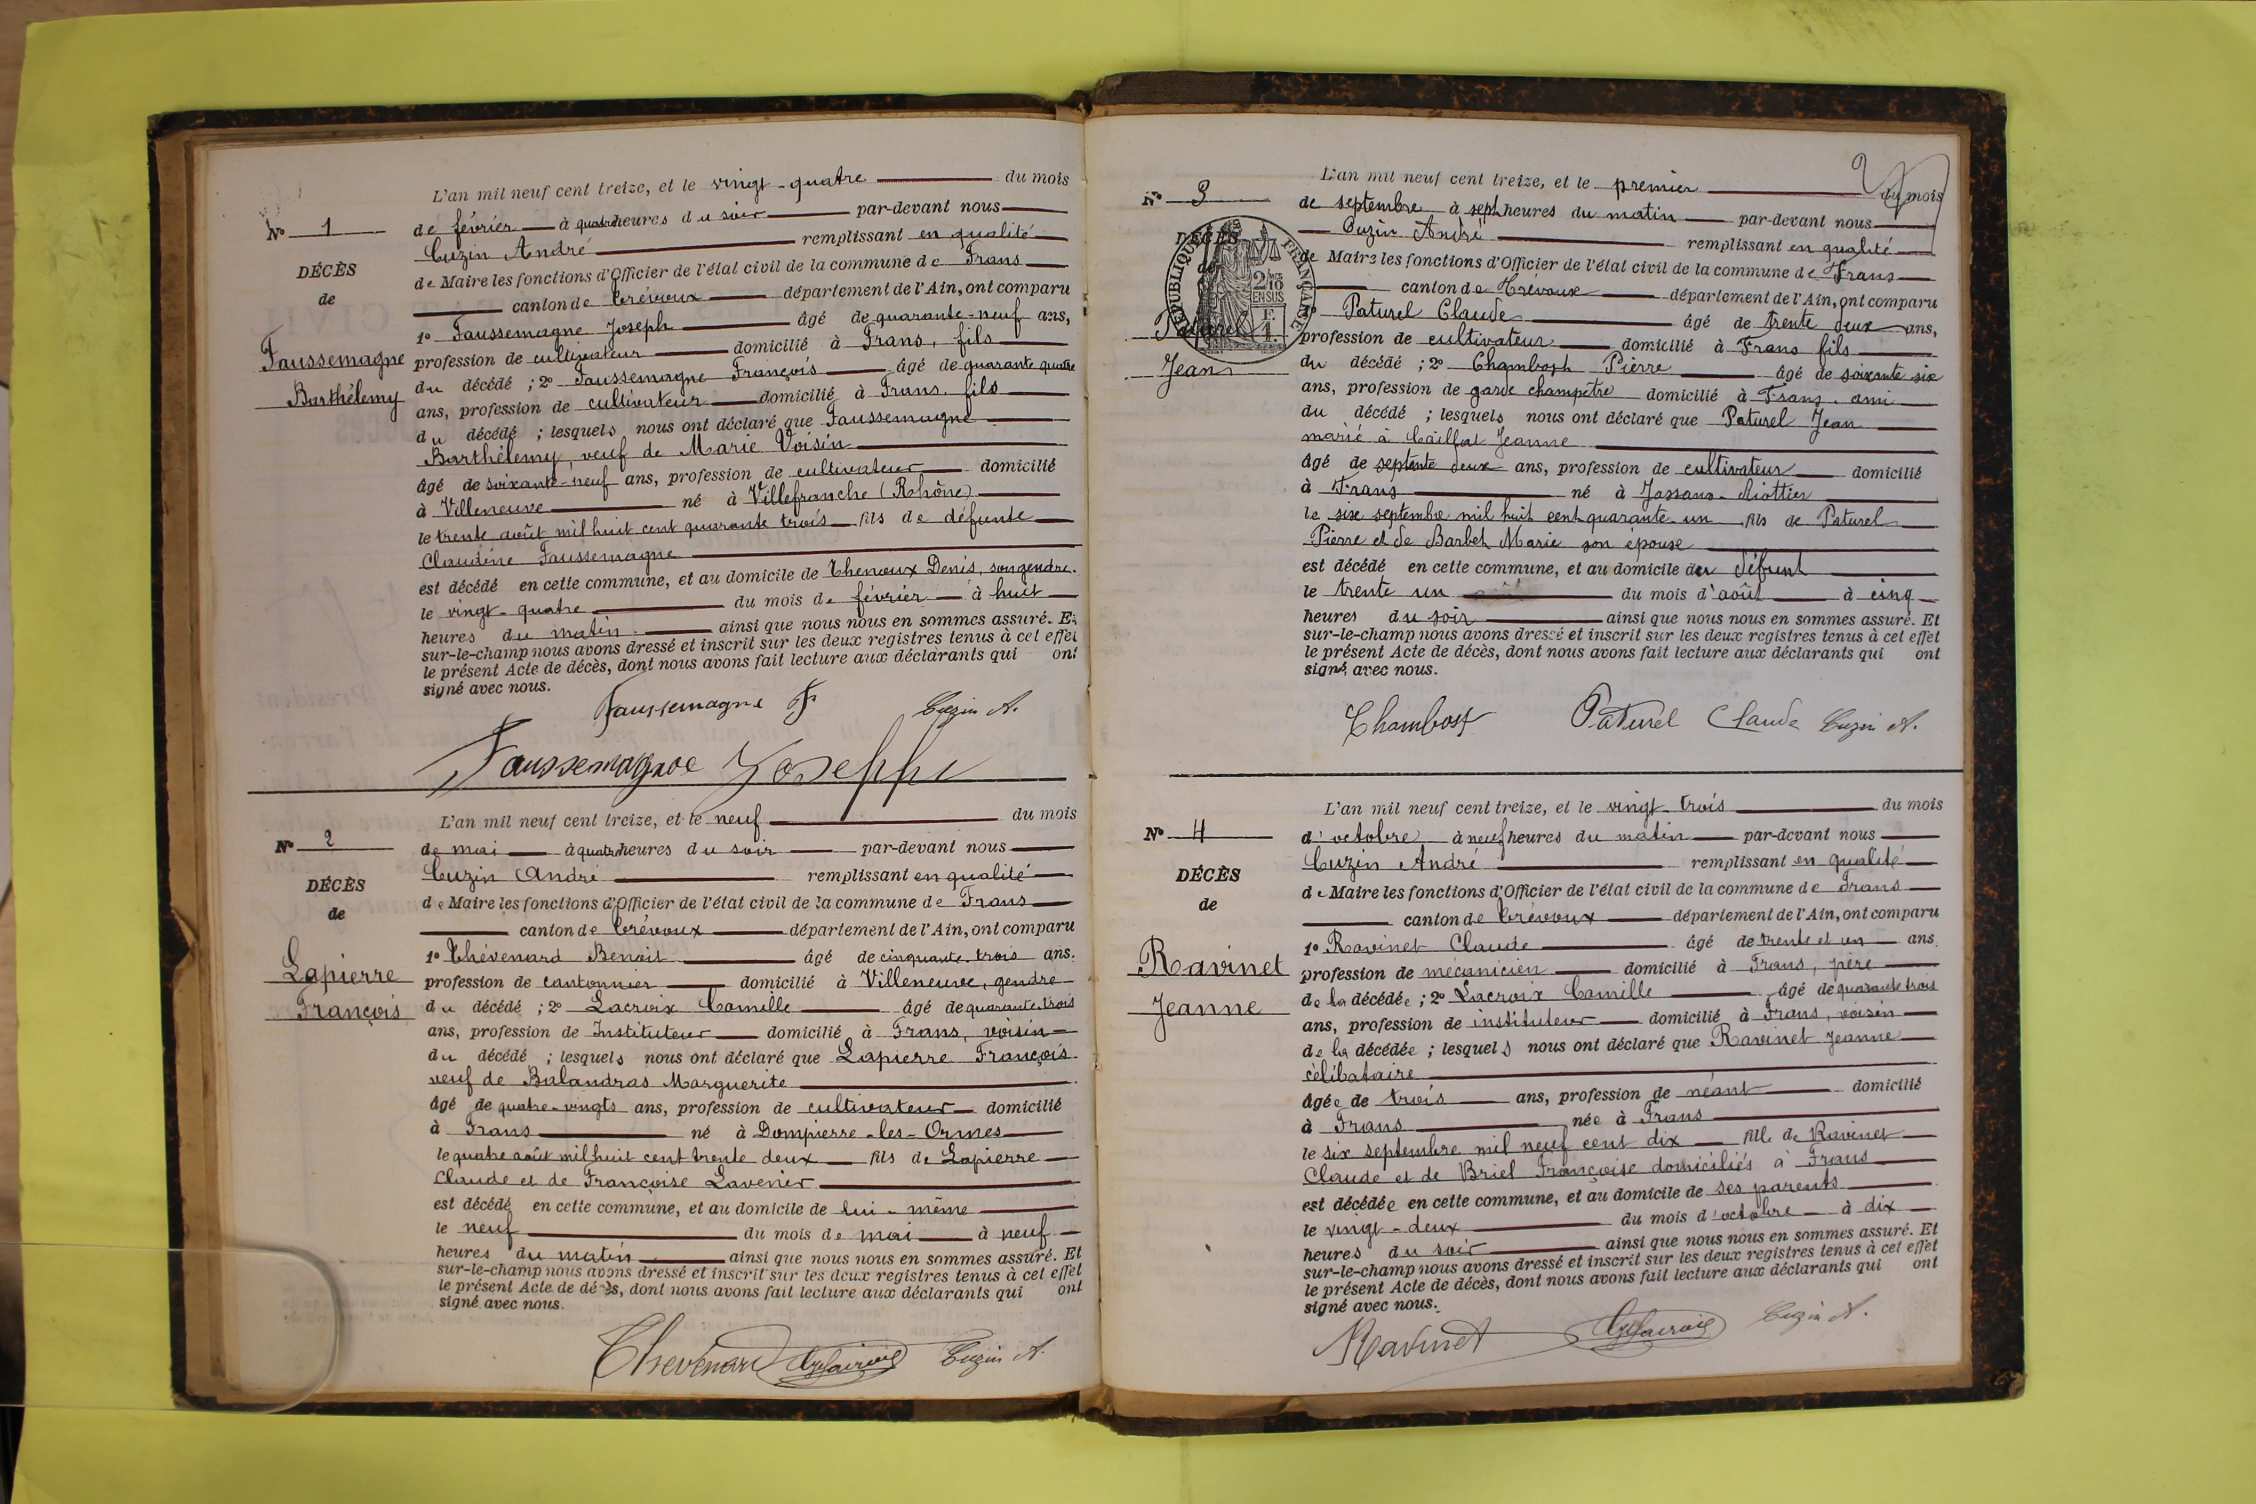 L'an mil neuf cent treize, et le vingt-quatre du mois
No 1
de février à quatre heures du soir par-devant nous
Cuzin André remplissant en qualité
DÉCÈS
de Maire les fonctions d'Officier de l'état civil de la commune de Frans
de
canton de Trévoux département de l'Ain, ont comparu
1o Faussemagne Joseph âgé de quarante-neuf ans,
Faussemagne
profession de cultivateur domicilié à Frans, fils
du décédé ; 2o Faussemagne François âgé de quarante quatre
Barthélemy
ans, profession de cultivateur domicilié à Frans. fils
du décédé ; lesquels nous ont déclaré que Faussemagne
Barthélemy, veuf de Marie Voisin
âgé de soixante-neuf ans, profession de cultivateur domicilié
à Villeneuve né à Villefranche (Rhône)
le trente août mil huit cent quarante trois fils de défunte
Claudine Faussemagne
est décédé en cette commune, et au domicile de Thenoux Denis, son gendre.
le vingt-quatre du mois de février à huit
heures du matin. ainsi que nous nous en sommes assuré. Et
sur-le-champ nous avons dressé et inscrit sur les deux registres tenus à cet effet
le présent Acte de décès, dont nous avons fait lecture aux déclarants qui ont
signé avec nous.
Faussemagne F Cuzin A.
Faussemagne Joseph
L'an mil neuf cent treize, et le neuf du mois
No 2
de mai à quatre heures du soir par-devant nous
Cuzin André remplissant en qualité
DÉCÈS
de Maire les fonctions d'Officier de l'état civil de la commune de Frans
de
canton de Trévoux département de l'Ain, ont comparu
1o Thévenard Benoit âgé de cinquante trois ans.
Lapierre
profession de cantonnier domicilié à Villeneuve, gendre
François
du décédé ; 2o Lacroix Camille âgé de quarante-trois
ans, profession de Instituteur domicilié à Frans, voisin
du décédé ; lesquels nous ont déclaré que Lapierre François
veuf de Balandras Marguerite
âgé de quatre-vingts ans, profession de cultivateur domicilié
à Frans né à Dompierre-les-Ormes
le quatre août mil huit cent trente deux fils de Lapierre
Claude et de Françoise Lavenir
est décédé en cette commune, et au domicile de lui-même
le neuf du mois de mai à neuf
heures du matin ainsi que nous nous en sommes assuré. Et
sur-le-champ nous avons dressé et inscrit sur les deux registres tenus à cet effet
le présent Acte de décès, dont nous avons fait lecture aux déclarants qui ont
signé avec nous.
Thevenard Lacroix Cuzin A.
2
L'an mil neuf cent treize, et le premier du mois
No 3
de septembre à sept heures du matin par-devant nous
Cuzin André remplissant en qualité
DÉCÈS
de Maire les fonctions d'Officier de l'état civil de la commune de Frans
de
RÉPUBLIQUE FRANÇAISE
2/10
EN SUS
F.
1.
canton de Trévoux département de l'Ain, ont comparu
1o Paturel Claude âgé de trente deux ans,
Paturel
profession de cultivateur domicilié à Frans fils
Jean
du décédé ; 2o Chambost Pierre âgé de soixante six
ans, profession de garde champêtre domicilié à Frans. ami
du décédé ; lesquels nous ont déclaré que Paturel Jean
marié à Caillat Jeanne
âgé de septente deux ans, profession de cultivateur domicilié
à Frans né à Jassans-Riottier
le six septembre mil huit cent quarante-un fils de Paturel
Pierre et de Barbet Marie son épouse
est décédé en cette commune, et au domicile du défunt
le trente un du mois d'août à cinq
heures du soir ainsi que nous nous en sommes assuré. Et
sur-le-champ nous avons dressé et inscrit sur les deux registres tenus à cet effet
le présent Acte de décès, dont nous avons fait lecture aux déclarants qui ont
signé avec nous.
Chambost Paturel Claude Cuzin A.
L'an mil neuf cent treize, et le vingt-trois du mois
No 4
d'octobre à neuf heures du matin par-devant nous
Cuzin André remplissant en qualité
DÉCÈS
de Maire les fonctions d'Officier de l'état civil de la commune de Frans
de
canton de Trévoux département de l'Ain, ont comparu
1o Ravinet Claude âgé de trente et un ans.
Ravinet
profession de mécanicien domicilié à Frans, père
Jeanne
de la décédée ; 2o Lacroix Camille âgé de quarante trois
ans, profession de instituteur domicilié à Frans, voisin
de la décédée ; lesquels nous ont déclaré que Ravinet Jeanne
célibataire
âgée de trois ans, profession de néant domicilié
à Frans née à Frans
le six septembre mil neuf cent dix fille de Ravinet
Claude et de Briel Françoise domiciliés à Frans
est décédée en cette commune, et au domicile de ses parents
le vingt-deux du mois d'octobre à dix
heures du soir ainsi que nous nous en sommes assuré. Et
sur-le-champ nous avons dressé et inscrit sur les deux registres tenus à cet effet
le présent Acte de décès, dont nous avons fait lecture aux déclarants qui ont
signé avec nous.
Ravinet Lacroix Cuzin A.